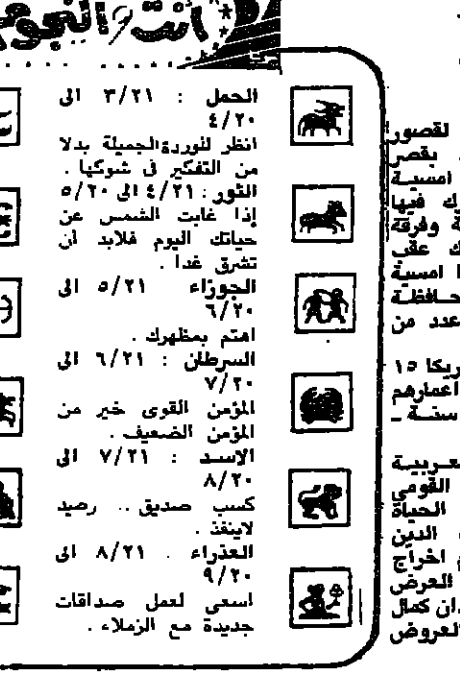 أنت والنجوم
الحمل : ٣/٢١ الى
٤/٢٠
انظر للوردة الجميلة بدلا
من التفكير فى شوكها .
الثور : ٤/٢١ الى ٥/٢٠
إذا غابت الشمس عن
حياتك اليوم فلابد أن
تشرق غدا .
الجوزاء ٥/٢١ الى
٦/٢٠
اهتم بمظهرك .
السرطان : ٦/٢١ الى
٧/٢٠
المؤمن القوى خير من
المؤمن الضعيف .
الاسد : ٧/٢١ الى
٨/٢٠
كسب صديق .. رصيد
لاينفذ .
العذراء . ٨/٢١ الى
٩/٢٠
اسعى لعمل صداقات
جديدة مع الزملاء .
لقصور
بقصر
امسية
يك فيها
ة وفرقة
ك عقب
ا امسية
حافظة
عدد من
ريكا ١٥
اعمارهم
سنة ـ
لعربية
القومى
الحياة
الدين
اخراج
العرض
دان كمال
لعروض